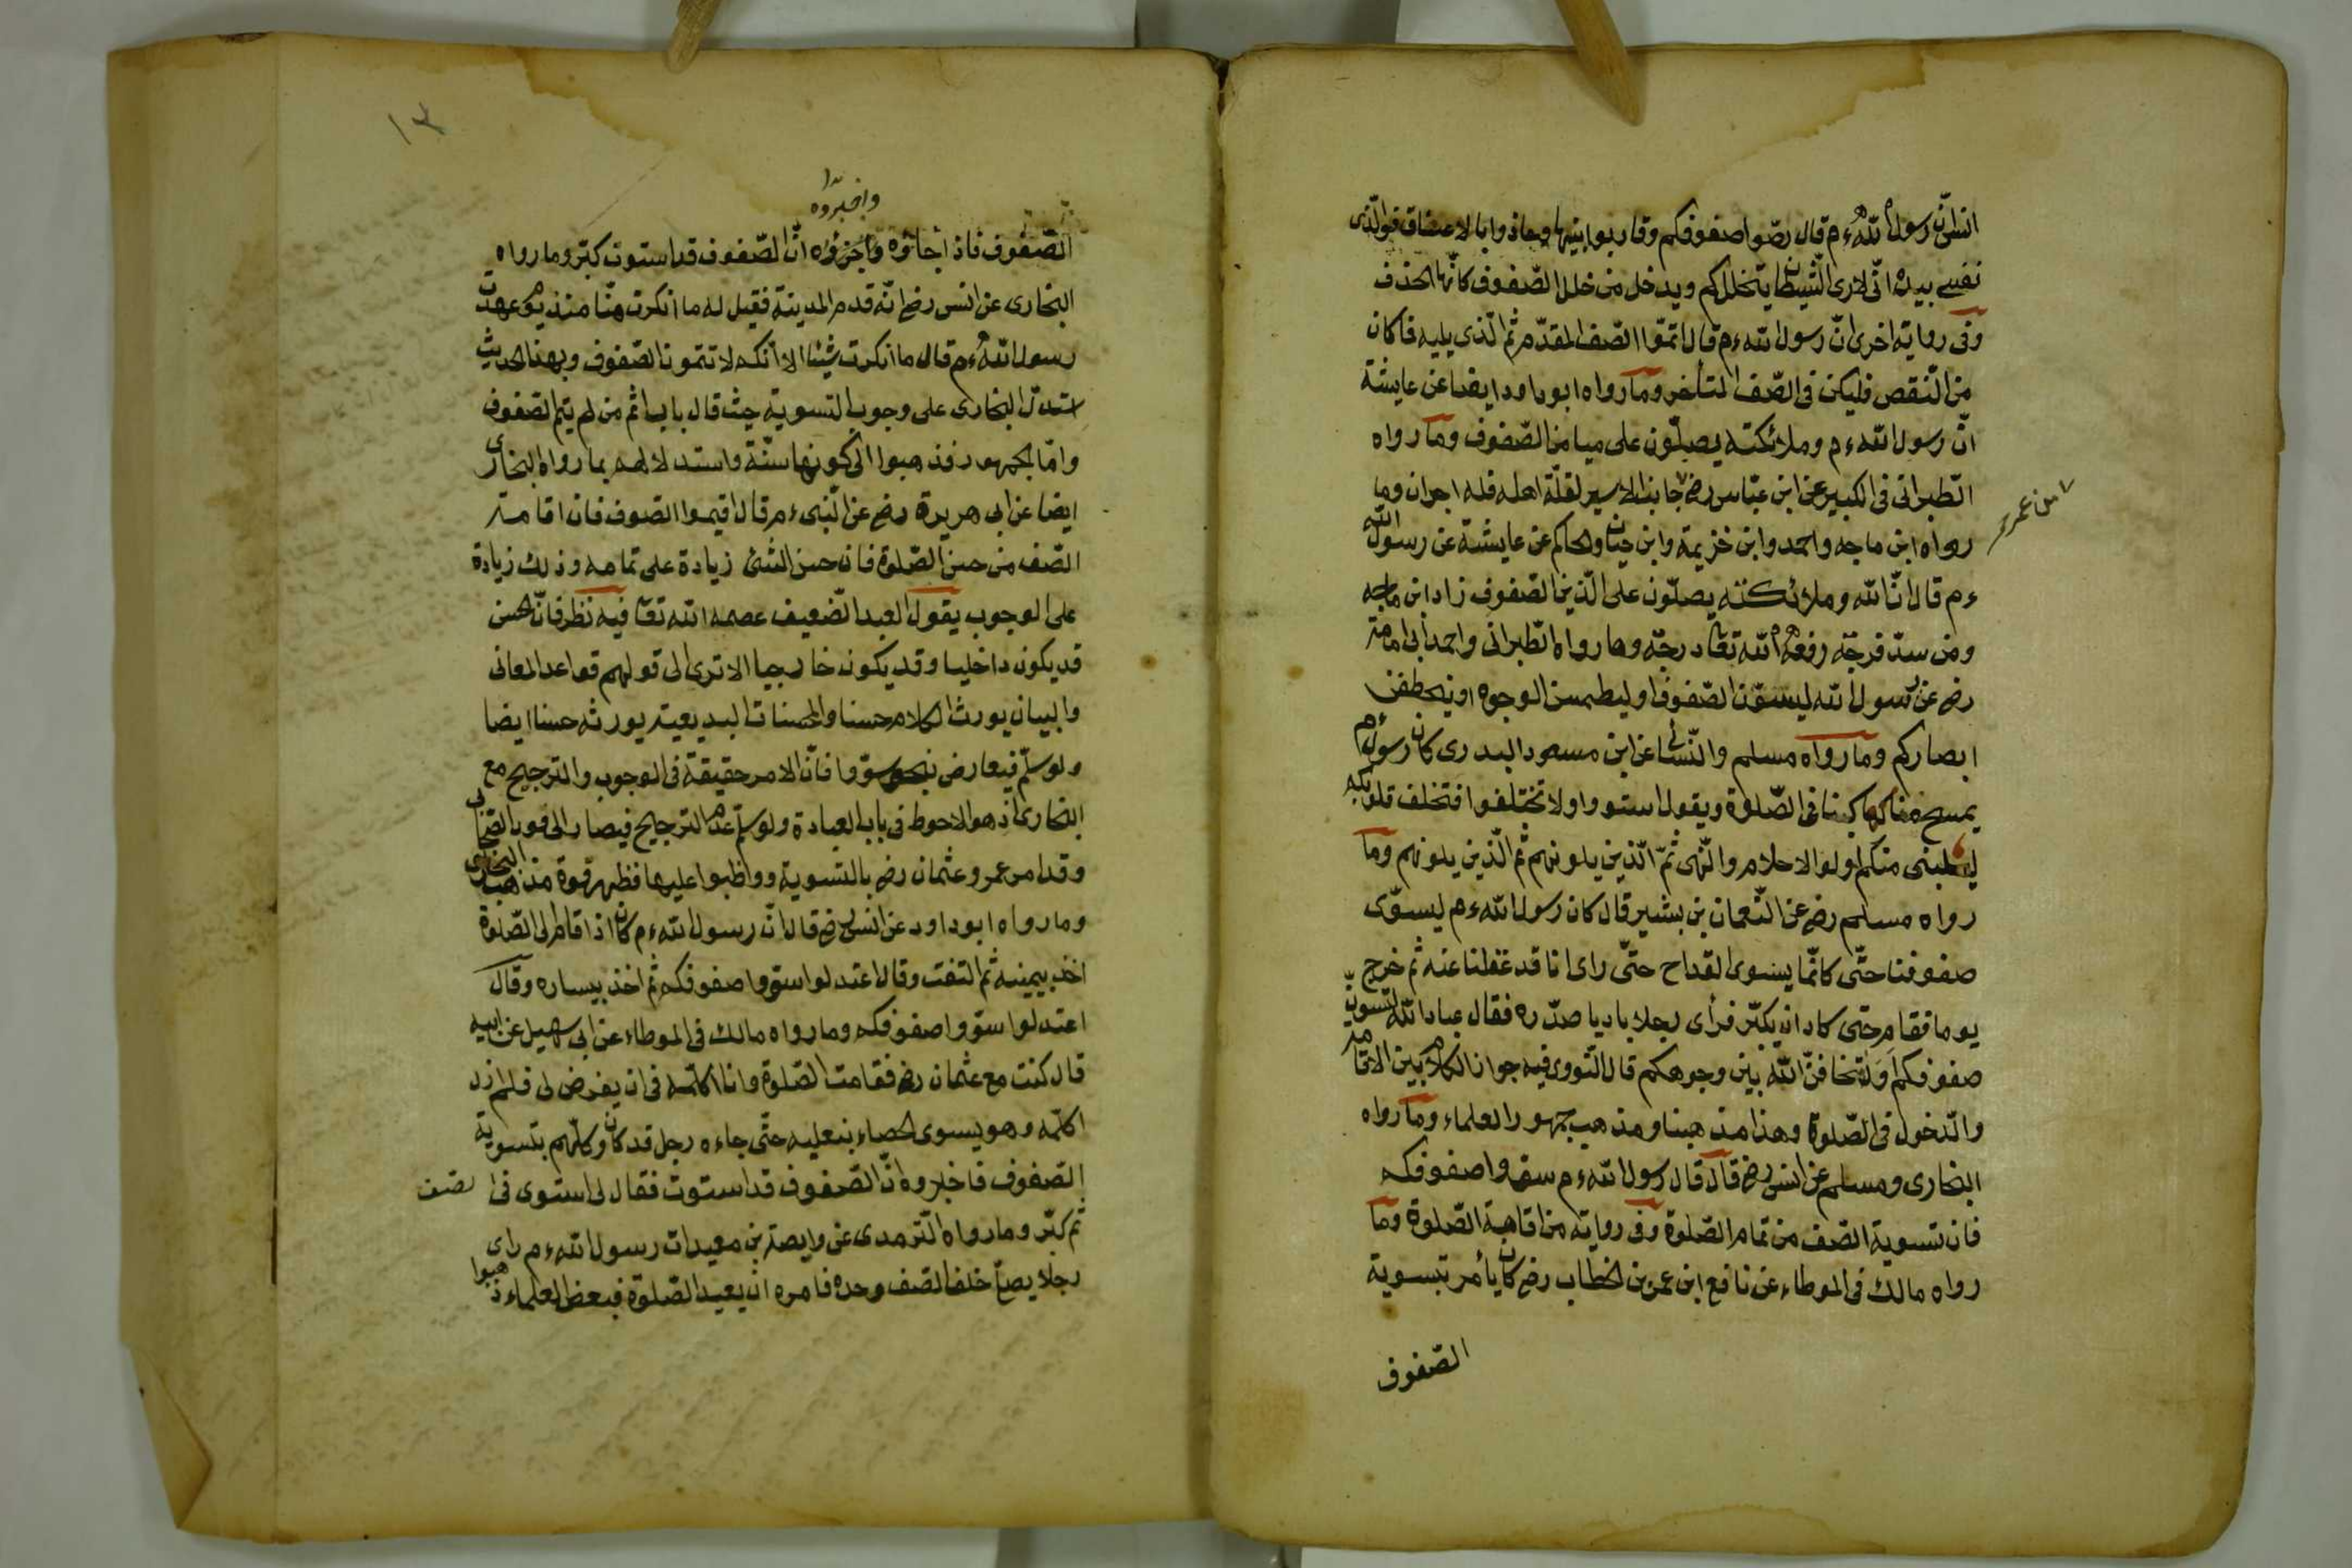 انس انّ رسول الله ءم قال رصّوا صفوفكم وقاربوا بينها وحاذوا بالاعناق فوالّذى
نفسى بيده انّى لارى الشّيطان يتخللكم ويدخل من خلل الصّفوف كانّها الحذف
وفى رواية اخرى انّ رسول الله ءم قال اتمّوا الصّف المقدّم ثم الّذى يليه فما كان
من النّقص فليكن فى الصّف المتأخر وما رواه ابو داود ايضا عن عايشة
انّ رسول الله ءم وملائكته يصلّون على ميامن الصّفوف وما رواه
الطّبرانى فى الكبير عن ابن عبّاس رض جانبه الايسر لقلّة اهله فله اجران وما
٧ من عمر
رواه ابن ماجه واحمد وابن خزيمة وابن حبان والحاكم عن عايشة عن رسول الله
ءم قال انّ الله وملائكته يصلّون على الّذين الصّفوف زاد ابن ماجه
ومن سدّ فرجة رفعه الله تعا درجة وما رواه الطّبرانى واحمد ابى امامة
رض عن رسول الله ليسوّن الصّفوف او ليطمسن الوجوه او يخطفن
ابصاركم وما رواه مسلم والنّسائى عن ابن مسعود البدرى كان رسول ءم
يمسح مناكبنا فى الصّلوة ويقول استووا ولا تختلفوا فتختلف قلوبكم
ليلينى منكم اولوا الاحلام والنّهى ثمّ الّذين يلونهم ثم الّذين يلونهم وما
رواه مسلم رض عن النّعمان بن بشير قال كان رسول الله ءم ليسوّى
صفوفنا حتّى كانّما يسوى القداح حتّى راى انا قد غفلنا عنه ثم خرج
يوما فقام حتى كاد ان يكبّر فرأى رجلا باديا صدره فقال عباد الله لتسونّ
صفوفكم او ليخالفنّ الله بين وجوهكم قال النّووى فيه جواز الكلام بين الاقامة
والدّخول فى الصّلوة وهذا مذهبنا ومذهب جمهور العلماء وما رواه
البخارى ومسلم عن انس رض قال قال رسول الله ءم سوّوا صفوفكم
فان تسوية الصّف من تمام الصّلوة وفى رواية من اقامة الصّلوة وما
رواه مالك فى الموطاء عن نافع ابن عمر بن الخطاب رض كان يأمر بتسوية
الصّفوف
١٣
واخبروه
الصّفوف فاذا جاؤه واخبروه انّ الصّفوف قد استوت كبّر وما رواه
البخارى عن انس رض انّه قدم المدينة فقيل له ما انكرت منّا منذ يوم عهدت
رسول الله ءم قال ما انكرت شيئا الا انكم لا تتمون الصّفوف وبهذا الحديث
استدلّ البخارى على وجوب التسوية حيث قال باب اثم من لم يتم الصّفوف
وامّا الجمهور فذهبوا الى كونها سنّة واستدلالهم بما رواه البخارى
ايضا عن ابى هريرة رض عن النّبى ءم قال اقيموا الصّفوف فان اقامة
الصّف من حسن الصّلوة فان حسن الشئ زيادة على تمامه وذلك زيادة
على الوجوب يقول العبد الضّعيف عصمه الله تعا فيه نظر فانّ الحسن
قد يكون داخليا وقد يكون خارجيا الا ترى الى قولهم قواعد المعانى
والبيان يورث الكلام حسنا والمحسنات البديعية يورثه حسنا ايضا
ولو سلّم فيعارض سوّوا فانّ الامر حقيقة فى الوجوب والترجيح مع
البخارى اذ هو الاحوط فى باب العبادة ولو سلّم عدم الترجيح فيصار الى قول الصّحابى
وقد امر عمر وعثمان رض بالتسوية وواظبوا عليها فظهر قوة مذهب البخارى
وما رواه ابو داود عن انس رض قال انّ رسول الله ءم كان اذا قام الى الصّلوة
اخذ بيمينه ثم التفت وقال اعتدلوا سوّوا صفوفكم ثم اخذ بيساره وقال
اعتدلوا سوّوا صفوفكم وما رواه مالك فى الموطاء عن ابى سهيل عن ابيه
قال كنت مع عثمان رض فقامت الصّلوة وانا اكلّمه فى ان يفرض لى فلم ازل
اكلّمه وهو يسوى الحصاء بنعليه حتّى جاءه رجل قد كان وكلّهم بتسوية
الصّفوف فاخبروه انّ الصّفوف قد استوت فقال لى استوى فى الصّف
ثم كبّر وما رواه التّرمدى عن وابصة بن معبد ان رسول الله ءم راى
رجلا يصلّ خلف الصّف وحده فامره ان يعيد الصّلوة فبعض العلماء ذهبوا